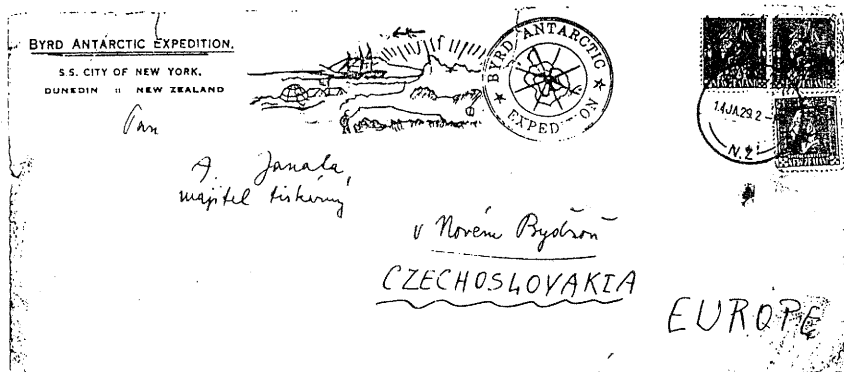 BYRD ANTARCTIC EXPEDITION.
S.S. CITY OF NEW YORK.
DUNEDIN :: NEW ZEALAND
★ BYRD ANTARCTIC ★ EXPEDITION
14JA29.2-
N.Z.
NEW ZEALAND
Pan
A. Janata,
majitel tiskárny
v Novém Bydžově
CZECHOSLOVAKIA
EUROPE